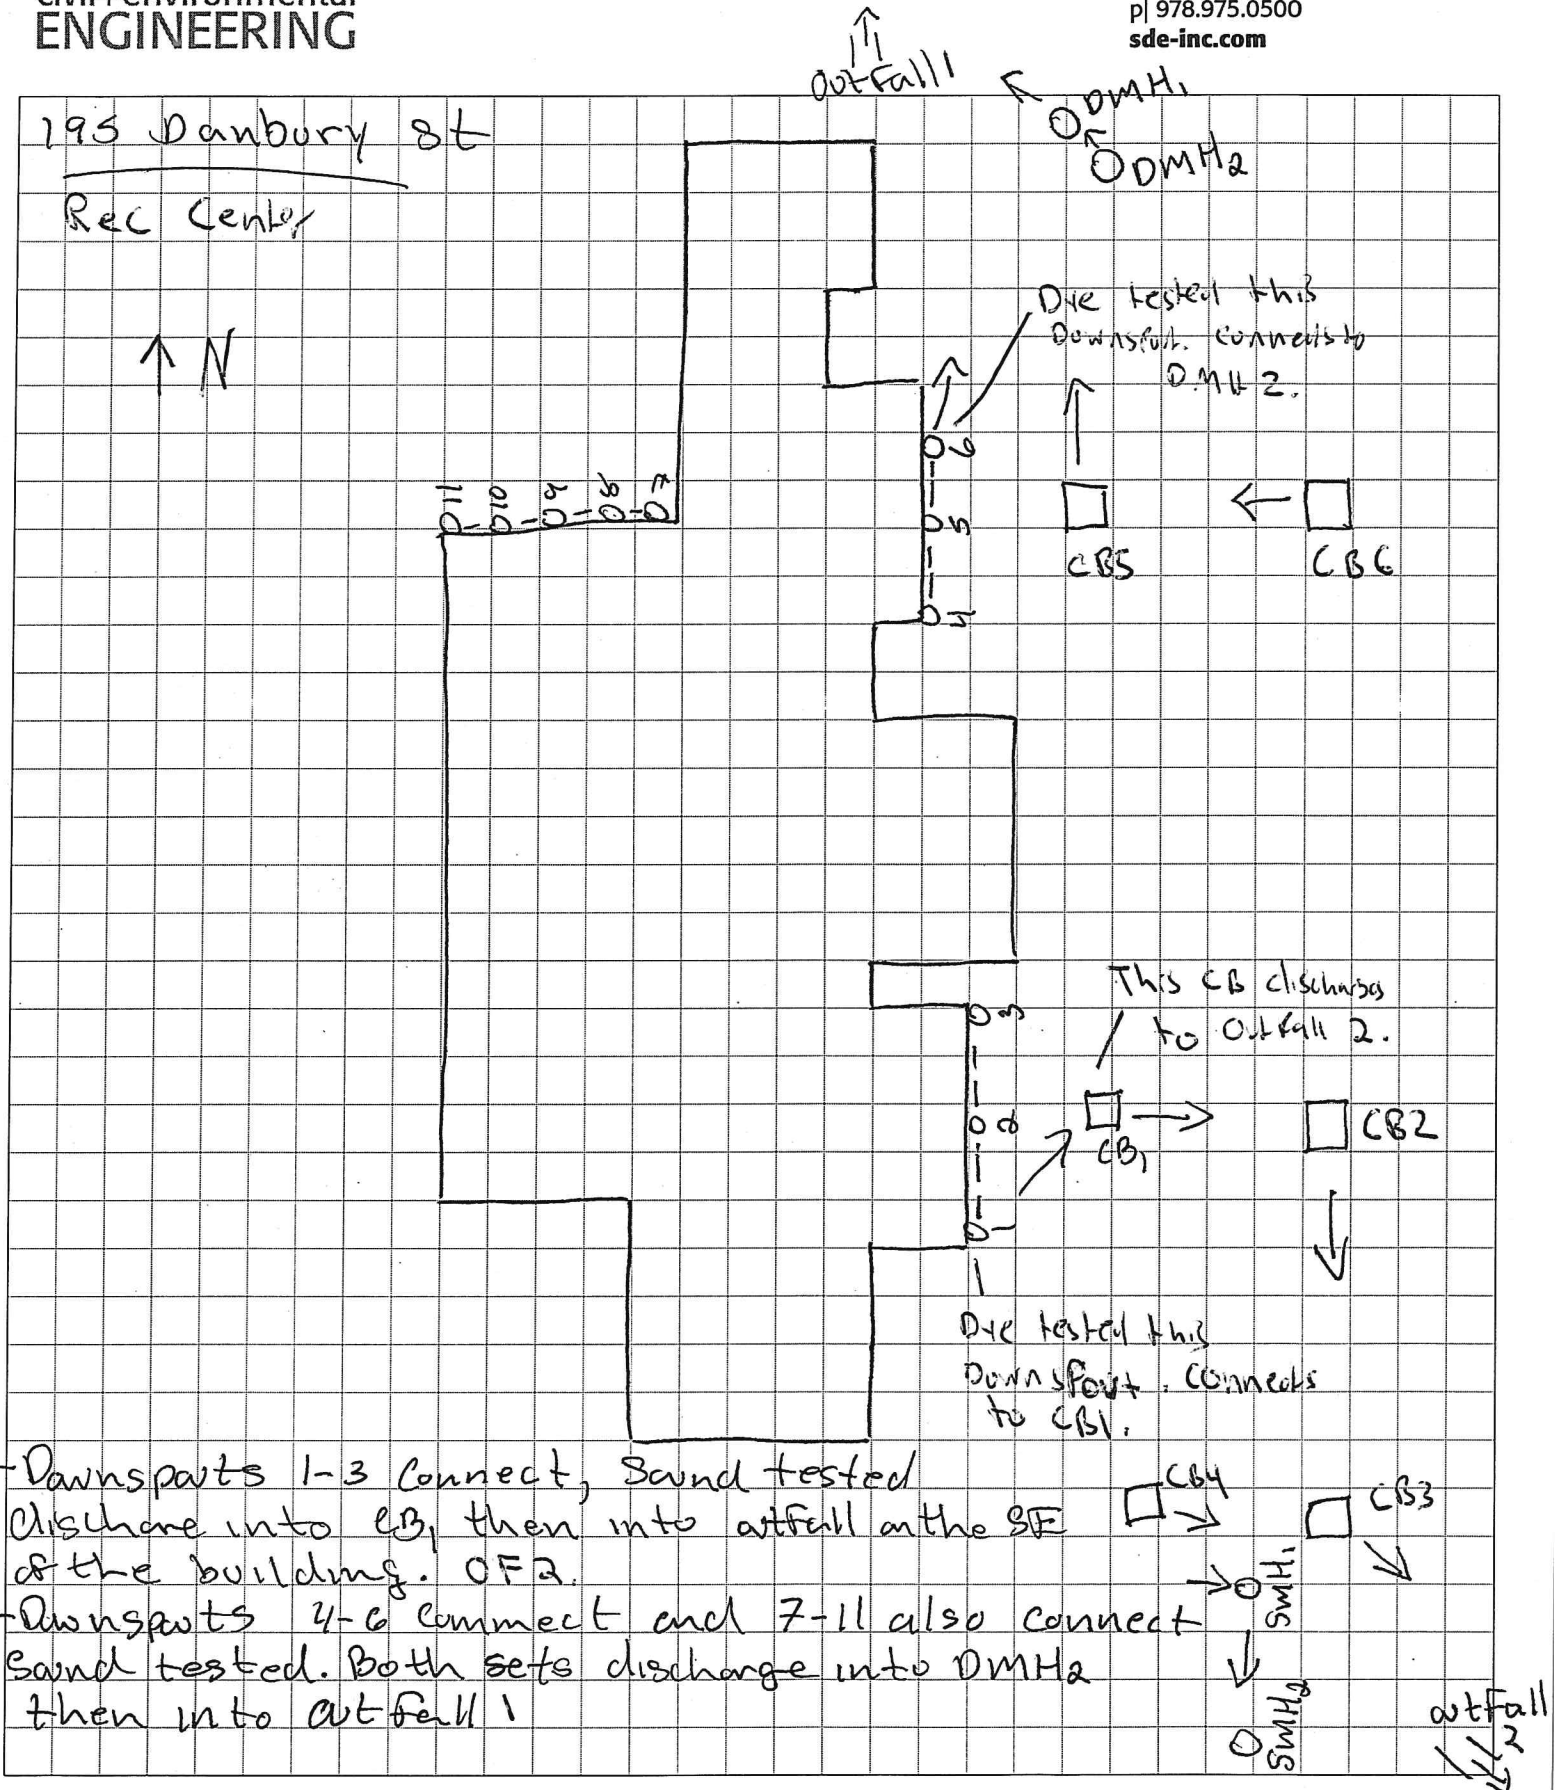 civil + environmental
ENGINEERING
p| 978.975.0500
sde-inc.com
outfall 1
DMH1
DMH2
195 Danbury St
Rec Center
N
Dye tested this
Downspout. connects to
DMH 2.
11
10
9
8
7
6
5
4
CB5
CB6
This CB discharges
to Outfall 2.
3
2
1
CB1
CB2
Dye tested this
Downspout. Connects
to CB1.
-Downspouts 1-3 Connect, Sound tested
dischare into CB1 then into outfall on the SE
of the building. OF2.
-Downspouts 4-6 commect and 7-11 also connect
Sound tested. Both sets discharge into DMH2
then into outfall 1
CB4
CB3
SMH1
SMH2
outfall
2